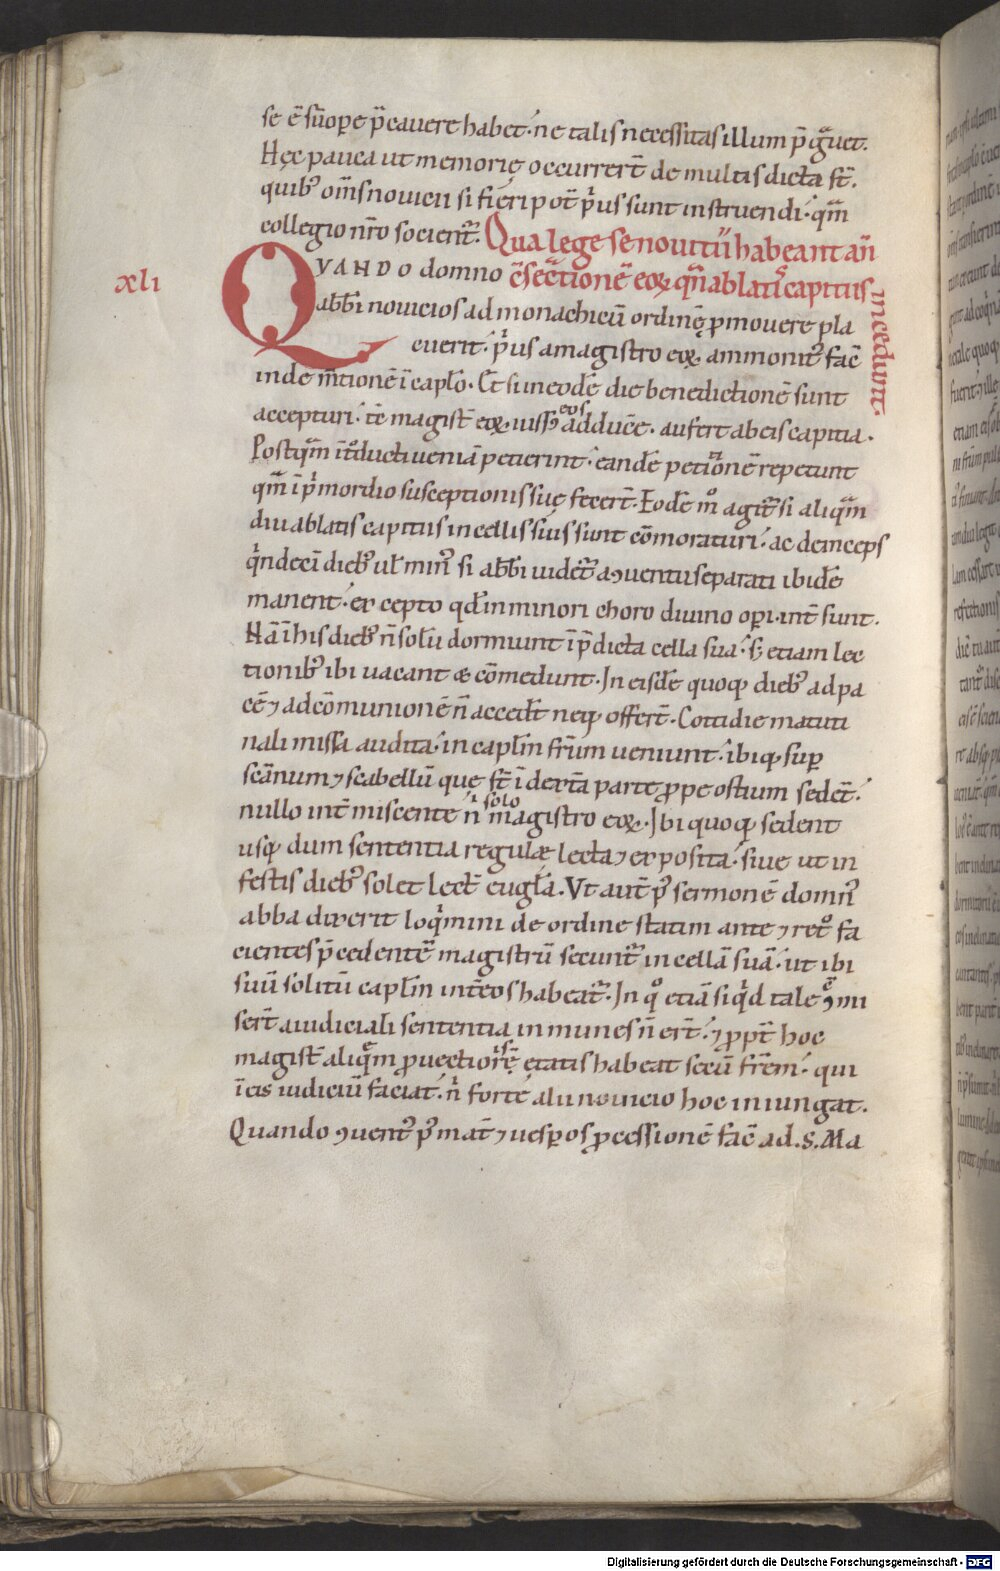 se ē sūop̱e p̄cavere habet. ne talis necessitas illum p̄gͣuet.
Hęc pauca ut memorię occurrert̄ de multis dicta st̄.
quibꝰ om̄s novicii si fieri pot̄ pⁱus sunt instruendi. qm̄
collegio nr̄o socient᷑. Qua lege se novitii habeant an
xli
QVANDO domno c̄secⁱtionē eoꝝ qn̄ ablatis capitiis incedunt.
abb̄i novicios ad monachicū ordinē ꝓmovere pla
cuerit. pⁱus a magistro eoꝝ ammonit᷑ facē
inde m̄tionē ī capl̄o. Et si in eodē die benedictionē sunt
accepturi. tc̄ magist̄ eoꝝ iussꝰ eos adducē. aufert ab eis capitia.
Postqͣm ītͦducti veniā petierint. eandē petitͦonē repetunt
qͣm ī pⁱmordio susceptionis suę fecert̄. Eodē mͦ agit᷑ si aliqͣm
diu ablatis capitiis in cellis suis sunt cōmoraturi. ac deinceps
qⁱndeci diebꝰ ul̄ minꝰ si abb̄i videt᷑ a ꝯventu separati ibidē
manent. excepto qd̄ in minori choro divino op̱i int̄sunt.
Nā ī his diebꝰ n̄ solū dormiunt ī p̄dicta cella sua. s; etiam lec
tionibꝰ ibi vacant & cōmedunt. In eisdē quoqꝫ diebꝰ ad pa
cē ⁊ ad cōmunionē n̄ accedt̄ neqꝫ offert̄. Cottidie matuti
nali missa audita. in capl̄m fr̄um veniunt. ibiqꝫ sup̱
scānum ⁊ scabellū que st̄ ī dextā parte ꝓpe ostium sedet̄.
nullo int̄miscente nⁱ solo magistro eoꝝ. Ibi quoqꝫ sedent
usqꝫ dum sententia regulæ lecta ⁊ exposita. sive ut in
festis diebꝰ solet lect̄ eugl̄a. Vt aut̄ pꝰ sermonē domnꝰ
abba dixerit loqⁱmini de ordine statim ante ⁊ retͦ fa
cientes p̄cedentē magistrū secunt᷑ in cellā suā. ut ibi
suū solitū capl̄m int̄ eos habeat᷑. In qͦ etiā si qⁱd tale ē ꝯmi
sert̄ a iudiciali sententia inmunes n̄ ert̄. ⁊ ꝓpt̄ hoc
magist̄ aliqͤm ꝓvectioris ętatis habeat secū fr̄em. qui
ī eis iudiciū faciat. nⁱ forte alii novicio hoc iniungat.
Quando ꝯventꝰ pꝰ mat̄ ⁊ vesp̱os ꝓcessionē facē ad .S. Ma
Digitalisierung gefördert durch die Deutsche Forschungsgemeinschaft - DFG